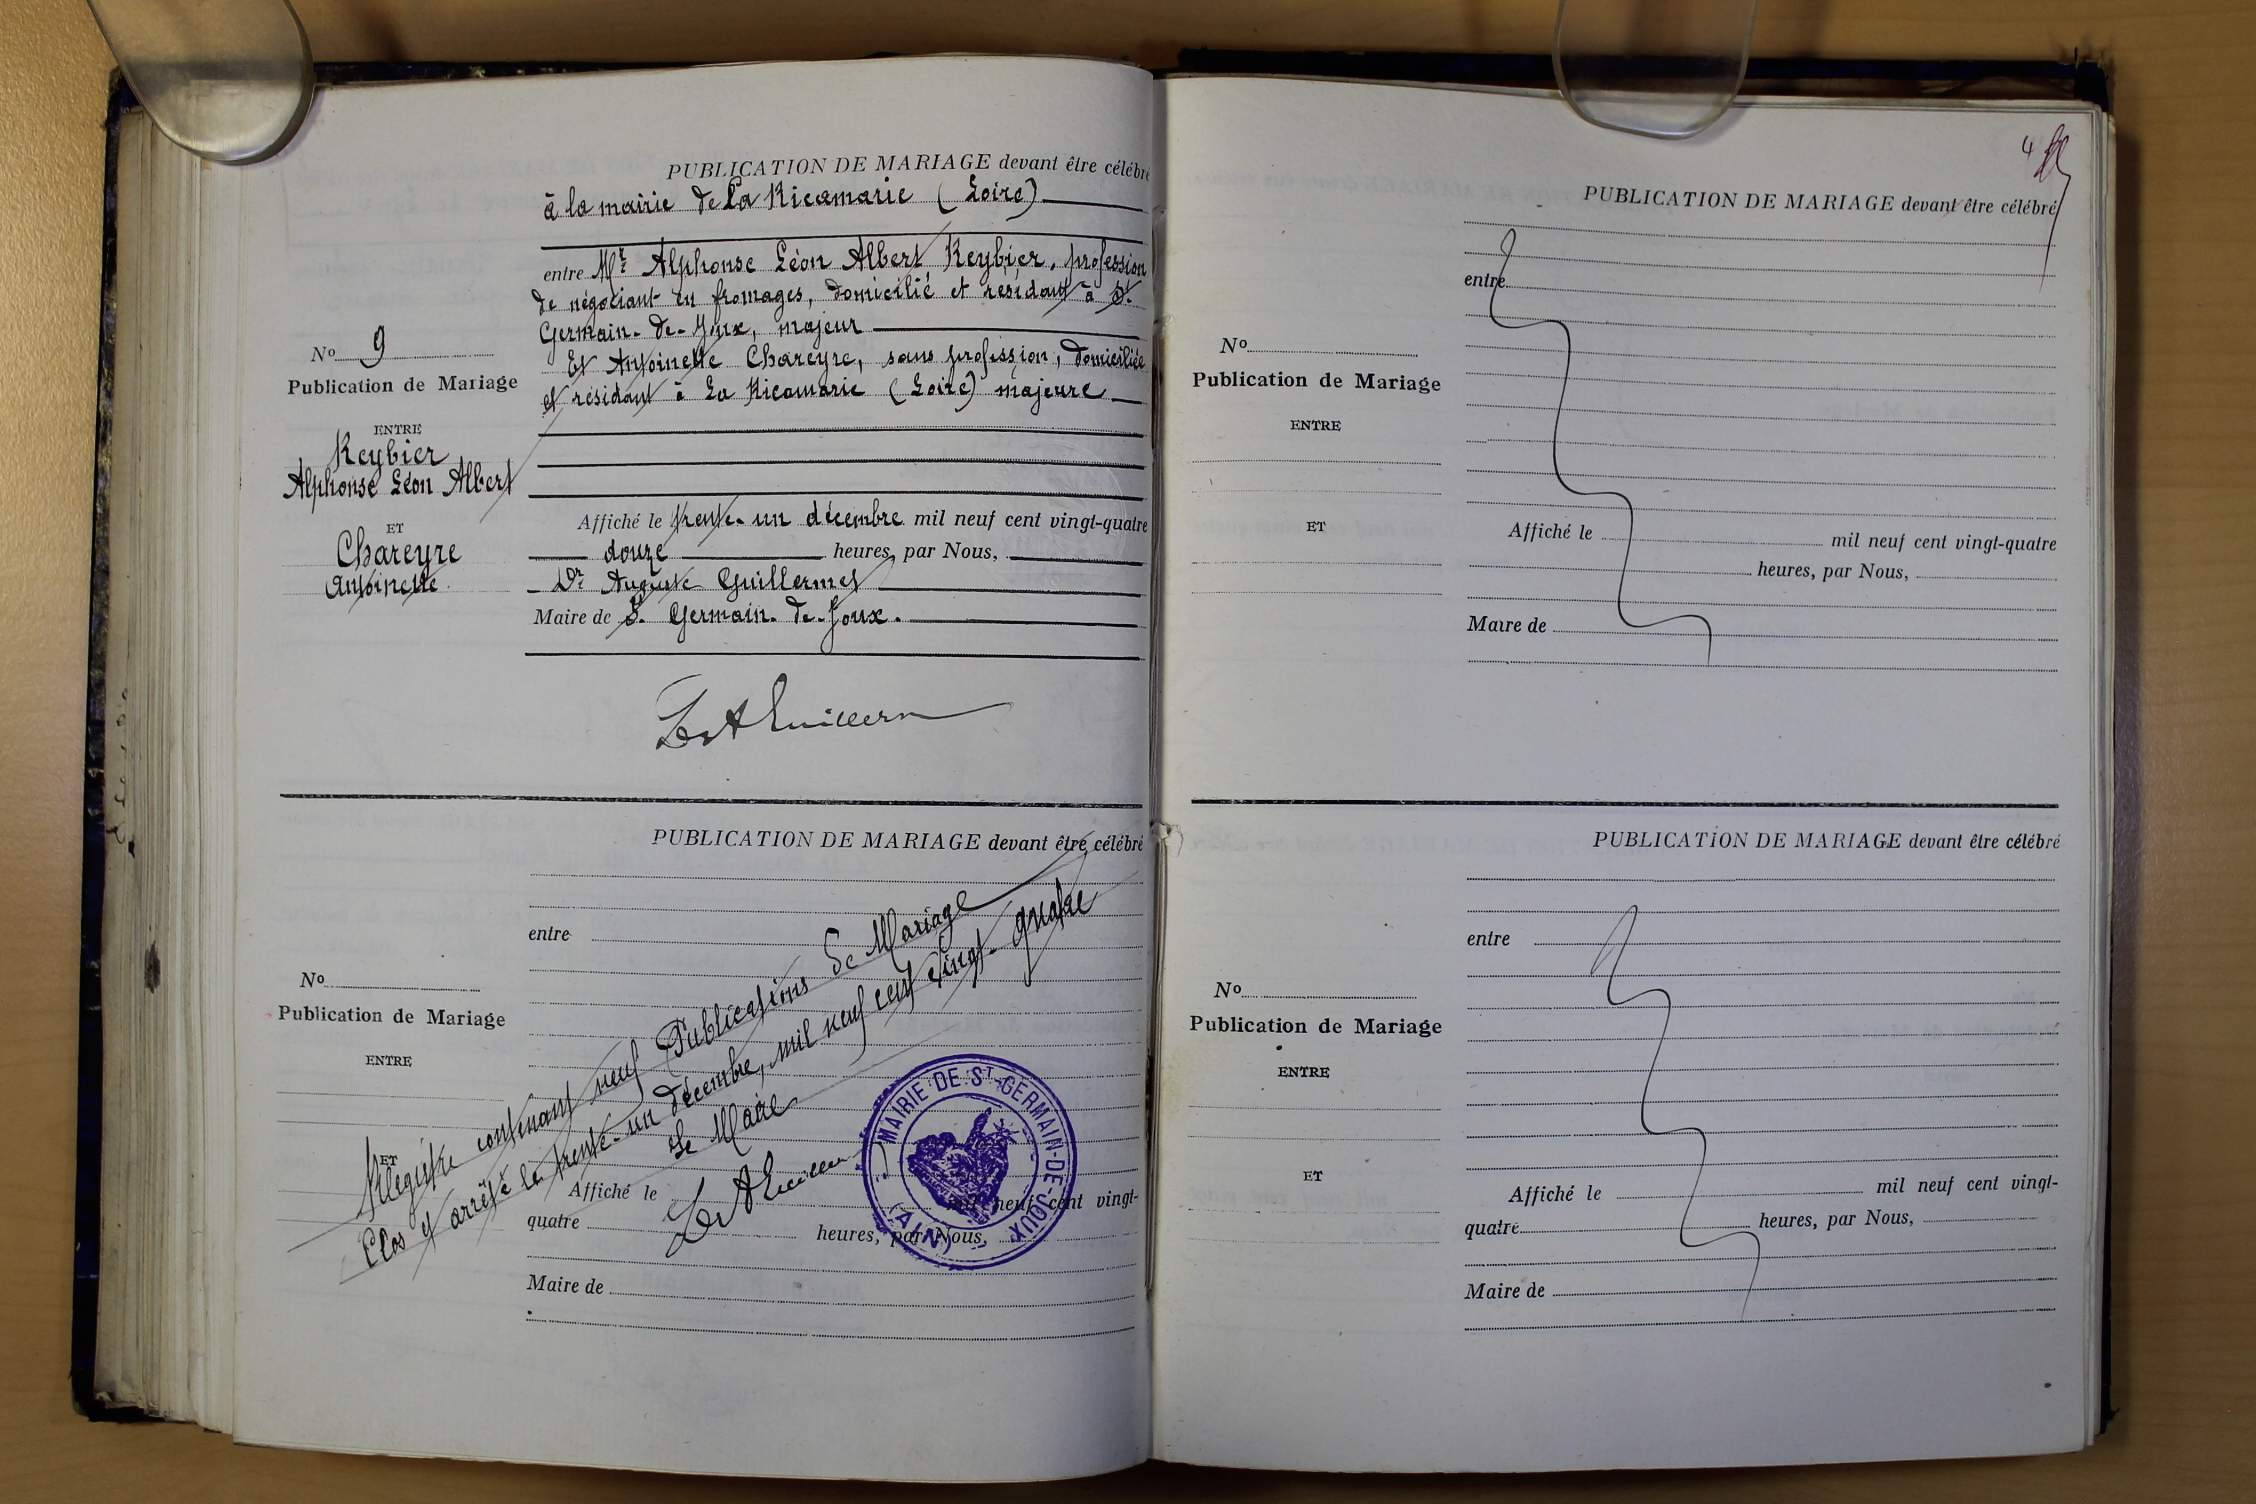 PUBLICATION DE MARIAGE devant être célébré
à la mairie de La Ricamarie (Loire)
entre Mr Alphonse Léon Albert Reybier, profession
de négociant en fromages, domicilié et résidant à St
Germain-de-Joux, majeur
Et Antoinette Chareyre, sans profession, domiciliée
et résidant à La Ricamarie (Loire) majeure
No 9
Publication de Mariage
ENTRE
Reybier
Alphonse Léon Albert
ET
Chareyre
Antoinette
Affiché le trente-un décembre mil neuf cent vingt-quatre
douze heures, par Nous,
Dr Auguste Guillermet
Maire de St Germain-de-Joux.
PUBLICATION DE MARIAGE devant être célébré
entre
No
Publication de Mariage
ENTRE
ET
Affiché le mil neuf cent vingt-
quatre heures, par Nous,
Maire de
Régistre contenant neuf Publications de Mariage
Clos et arrêté le trente-un décembre, mil neuf cent vingt-quatre
Le Maire
MAIRIE DE ST-GERMAIN-DE-JOUX
(AIN)
4
PUBLICATION DE MARIAGE devant être célébré
entre
No
Publication de Mariage
ENTRE
ET
Affiché le mil neuf cent vingt-quatre
heures, par Nous,
Maire de
PUBLICATION DE MARIAGE devant être célébré
entre
No
Publication de Mariage
ENTRE
ET
Affiché le mil neuf cent vingt-
quatre heures, par Nous,
Maire de